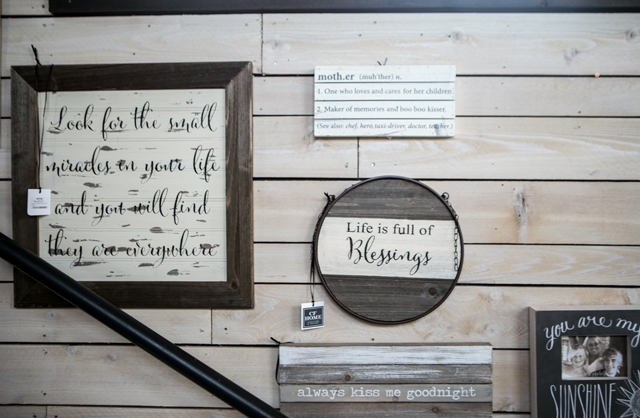 Look for the small
miracles in your life
and you will find
they are everywhere
moth.er (muh'ther) n.
1. One who loves and cares for her children.
2. Maker of memories and boo boo kisser.
(See also: chef, hero, taxi-driver, doctor, teacher.)
Life is full of
Blessings
CF
HOME
always kiss me goodnight
you are my
SUNSHINE